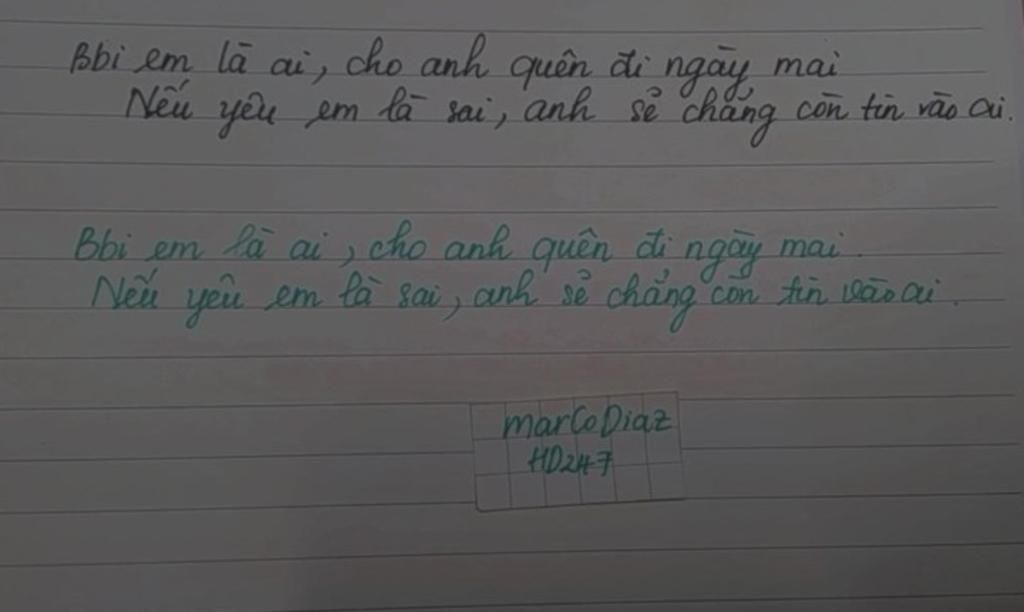 Bbi em là ai, cho anh quên đi ngày mai
Nếu yêu em là sai, anh sẻ chẳng còn tin vào ai.
Bbi em là ai, cho anh quên đi ngày mai.
Nếu yêu em là sai, anh sẻ chẳng còn tin vào ai.
marCoDiaz
HD247